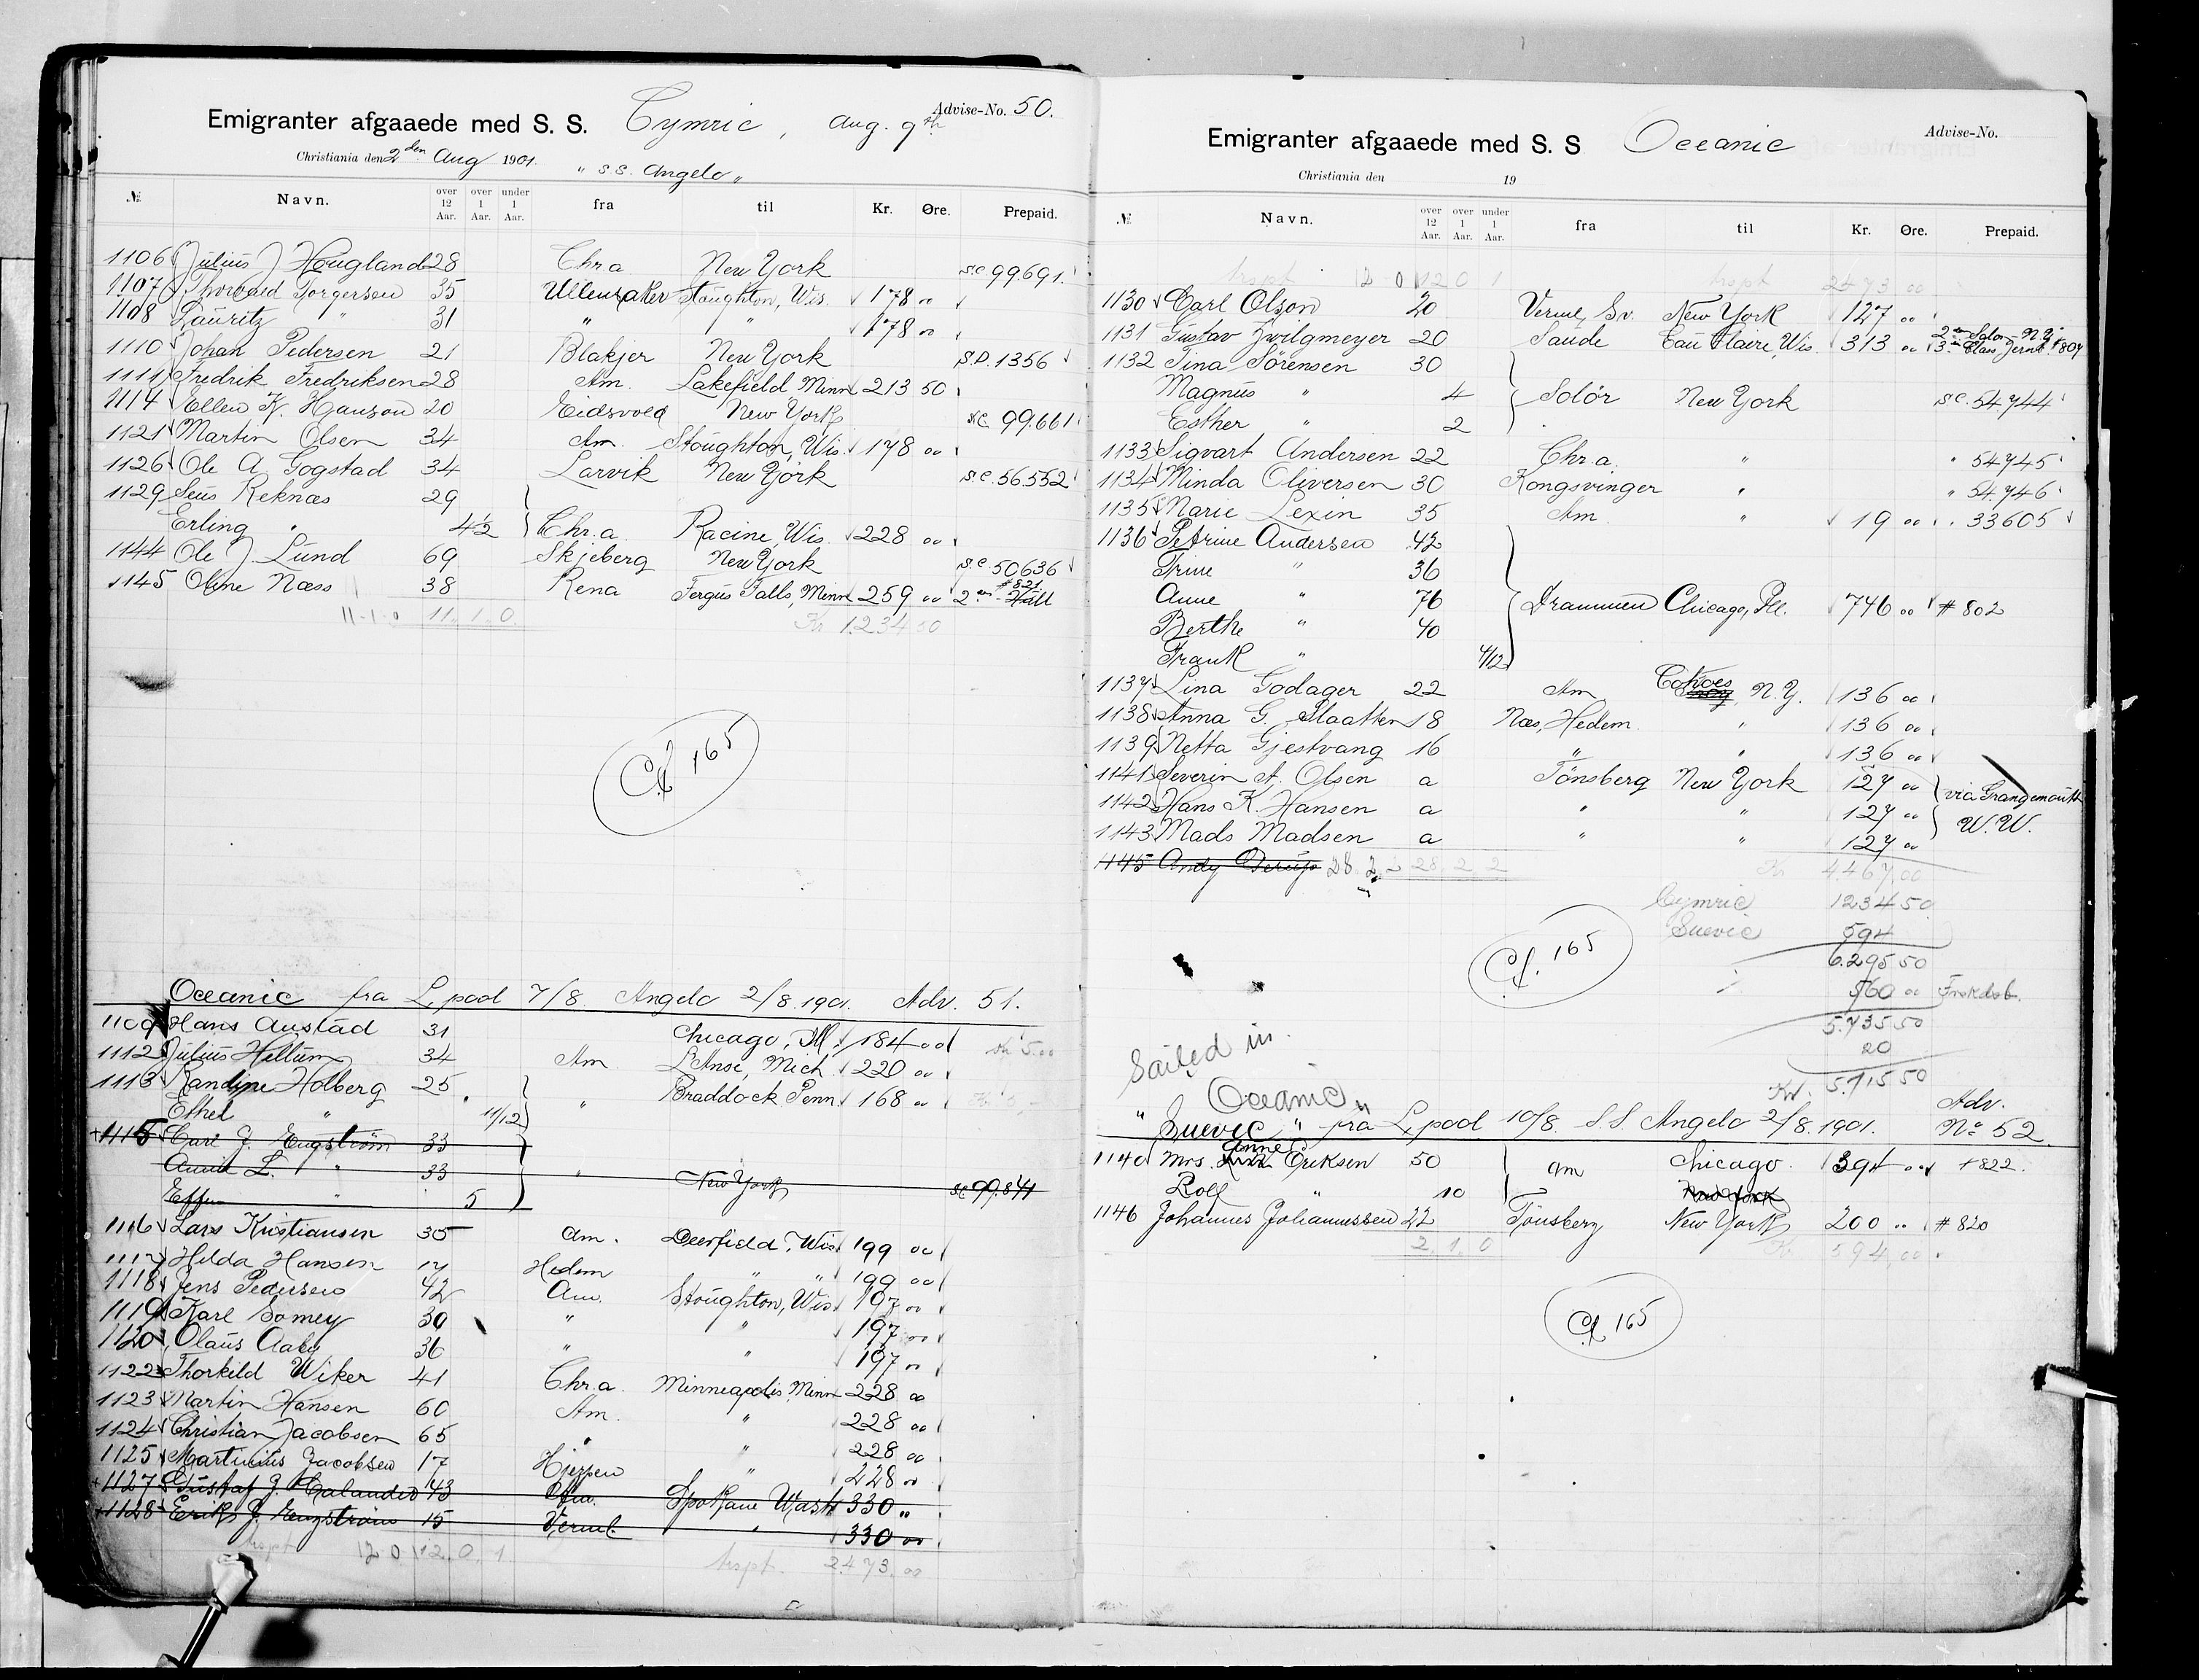 Advise-No. 50.
Emigranter afgaaede med S. S. Cymric, Aug. 9th
Christiania den 2den Aug 1901. " S.S. Angelo "
№ Navn. over 12 Aar. over 1 Aar. under 1 Aar. fra til Kr. Øre. Prepaid.
1106 Julius J Hougland 28 Chr.a New York S.C. 99.691.
1107 Thorvald Torgersen 35 Ullensaker Stoughton, Wis. 178 00
1108 Lauritz " 31 " " 178 00
1110 Johan Pedersen 21 Blakjer New York S.D. 1356
1111 Fredrik Fredriksen 28 Am. Lakefield Minn 213 50
1114 Ellen K. Hanson 20 Eidsvold New York S.C. 99.661
1121 Martin Olsen 34 Am. Stoughton, Wis. 178 00
1126 Ole A. Gogstad 34 Larvik New York S.C. 56.552
1129 Seus Reknæs 29
Erling " 4½ Chr.a. Racine, Wis. 228 00
1144 Ole J. Lund 69 Skjeberg New York S.C. 50636
1145 Oline Næss 38 Rena Fergus Falls, Minn 259 00 2en #821
11-1-0 11. 1. 0. Kr 1234 50
Cf 165
Oceanic fra L.pool 7/8. Angelo 2/8.1901. Adv. 51.
1109 Hans Austad 31 Chicago, Ill. 184 00
1112 Julius Hellum 34 Am L'Anse, Mich. 220 00
1113 Randine Holberg 25 " Braddock Penn. 168 00
Ethel " 11/12
+1115 Carl J. Engström 33
L. " 33 " New York S.C. 99.841
" 5
1116 Lars Kristiansen 35 Am. Deerfield, Wis. 199 00
1117 Hilda Hansen 17 Hedem " " 199 00
1118 Jens Pedersen 42 Am. Stoughton, Wis. 197 00
1119 Karl Somey 30 " " 197 00
1120 Olaus Aaby 36 " " 197 00
1122 Thorkild Wiker 41 Chr.a. Minneapolis, Minn 228 00
1123 Martin Hansen 60 Am. " 228 00
1124 Christian Jacobsen 65 " " 228 00
1125 Martinius Jacobsen 17 Hjerpen " 228 00
+1127 Gustaf J. 43 Am. Spokane Wash 330 "
+1128 Erik J. Engström 15 Verml. " 330 00
trspt 12 0 1 12. 0. 1 trspt. 2473. 00
Advise-No.
Emigranter afgaaede med S. S Oceanic
Christiania den 19
№ Navn. over 12 Aar. over 1 Aar. under 1 Aar. fra til Kr. Øre. Prepaid.
trspt 12 0 1 12 0 1 trspt 2473 00
1130 Carl Olson 20 Verml, Sv. New York 127 00
1131 Gustav Zwilgmeyer 20 Saude Eau Claire, Wis. 313 00 2en Salon N.Y. 3. Class Jernb #807
1132 Tina Sörensen 30
Magnus " 4 Solör New York S.C. 54744
Esther " 2
1133 Sigvart Andersen 22 Chr.a. " " 54745
1134 Minda Oliversen 30 Kongsvinger " " 54746
1135 Marie Lexin 35 Am. " 19 00 " 33605
1136 Petrine Andersen 42
Trine " 36
Anne " 76 Drammen Chicago, Ill. 746 00 # 802
Berthe " 40
Frank " 4/12
1137 Lina Godager 22 Am Cohoes, N.Y. 136 00
1138 Anna G. Slaatten 18 Næs, Hedem. " 136 00
1139 Netta Gjestvang 16 " " 136 00
1141 Severin A. Olsen a Tönsberg New York 127 00 via Grangemouth
1142 Hans K. Hansen a " " 127 00 W.W.
1143 Mads Madsen a " " 127 00
1145 Andy 28. 2. 2 28. 2. 2 Kr 4467,00
Cymric 1234 50
Suevic 594
6.295 50
560 00
5.735 50
20
Kr. 5.715 50
Cf. 165
Sailed in
Oceanic
" Suevic " fra L.pool 10/8. S.S. Angelo 2/8.1901. Adv. No. 52.
1140 Mrs. Anne Eriksen 50 Am Chicago. 394 00 #822.
Rolf " 10 New York
1146 Johannes Johannessen 22 Tönsberg New York 200 " # 820
2. 1. 0 Kr. 594,00
Cf. 165